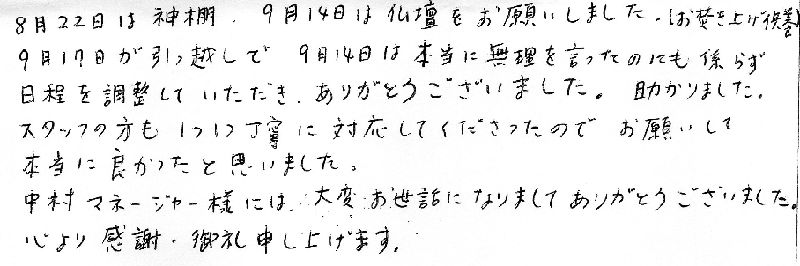 8月22日は神棚、9月14日は仏壇をお願いしました。(お焚き上げ供養)
9月17日が引っ越しで 9月14日は本当に無理を言ったのにも係らず
日程を調整していただき、ありがとうございました。助かりました。
スタッフの方も1つ1つ丁寧に対応してくださったので お願いして
本当に良かったと思いました。
中村マネージャー様には、大変お世話になりましてありがとうございました。
心より感謝・御礼申し上げます。